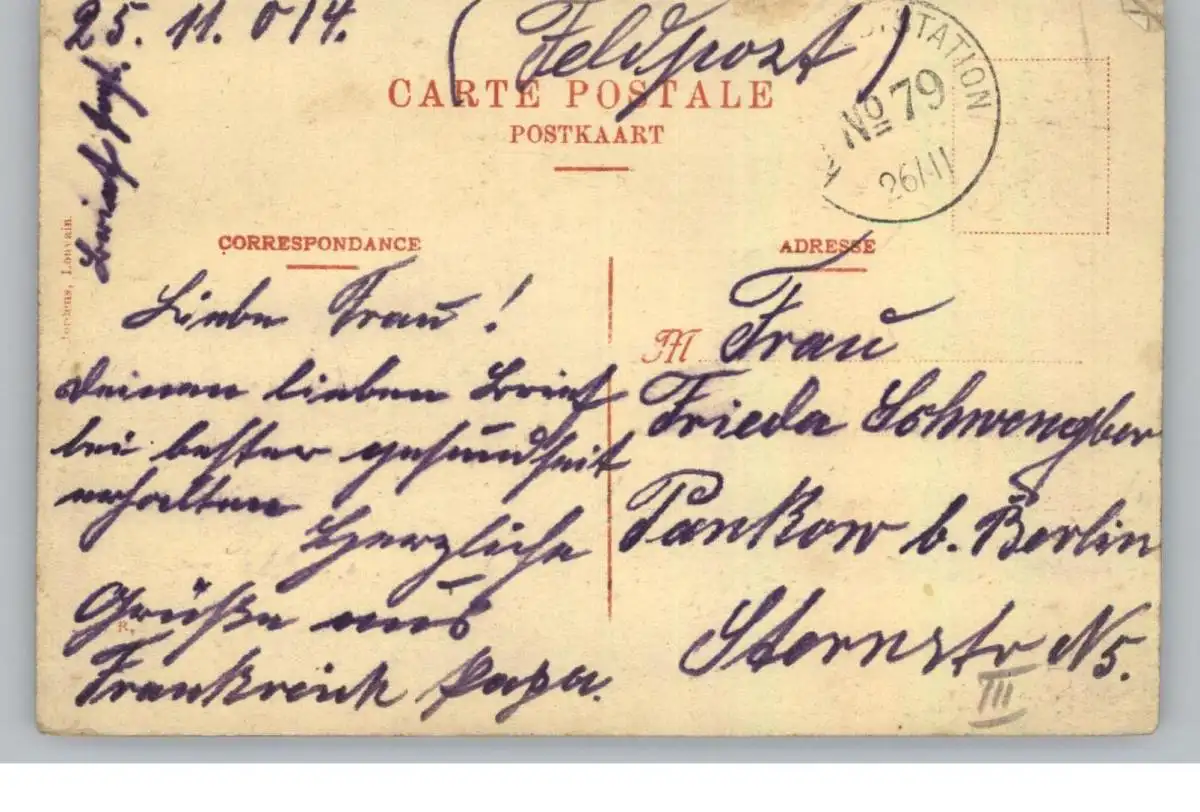 25. 11. 014.
(Feldpost)
CARTE POSTALE
POSTKAART
STATION
No 79
26/11
Brief folgt.
Jordens, Louvain
CORRESPONDANCE
ADRESSE
Liebe Frau!
deinen lieben Brief
bei bester gesundheit
erhalten
Herzliche
Grüße aus
Frankreich Papa.
R.
M
Frau
Frieda Schwengber
Pankow b. Berlin
Sternstr N5.
III